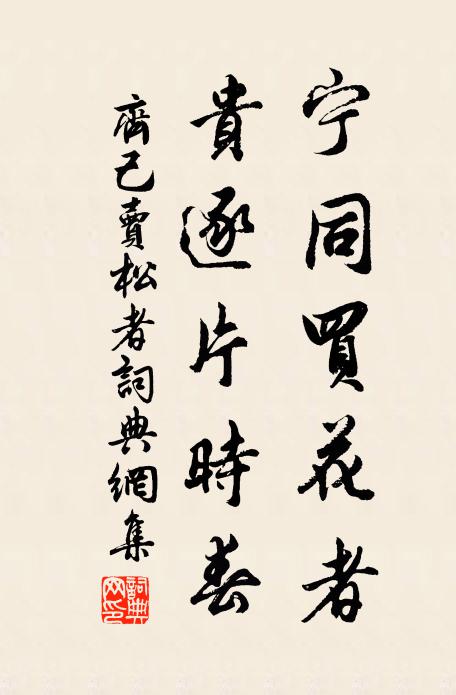 宁同買花者
貴逐片時春
齊己賣松者詞典網集
詞典网印